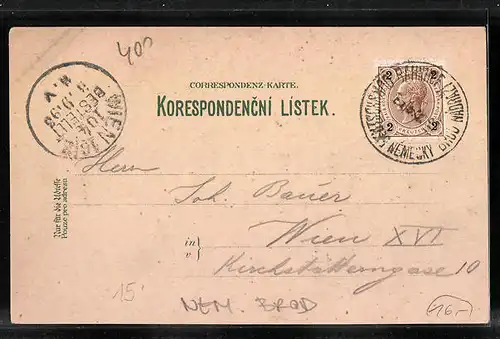 400
CORRESPONDENZ-KARTE.
KORESPONDENČNÍ LÍSTEK.
WIEN
BESTELLT
2 2
2 2
NĚMECKÝ BROD
Herrn
Joh. Bauer
in
v
Wien XVI
Kirchstetterngasse 10
Nur für die Adresse
Pouze pro adresu
15
NEM. BROD
16.-